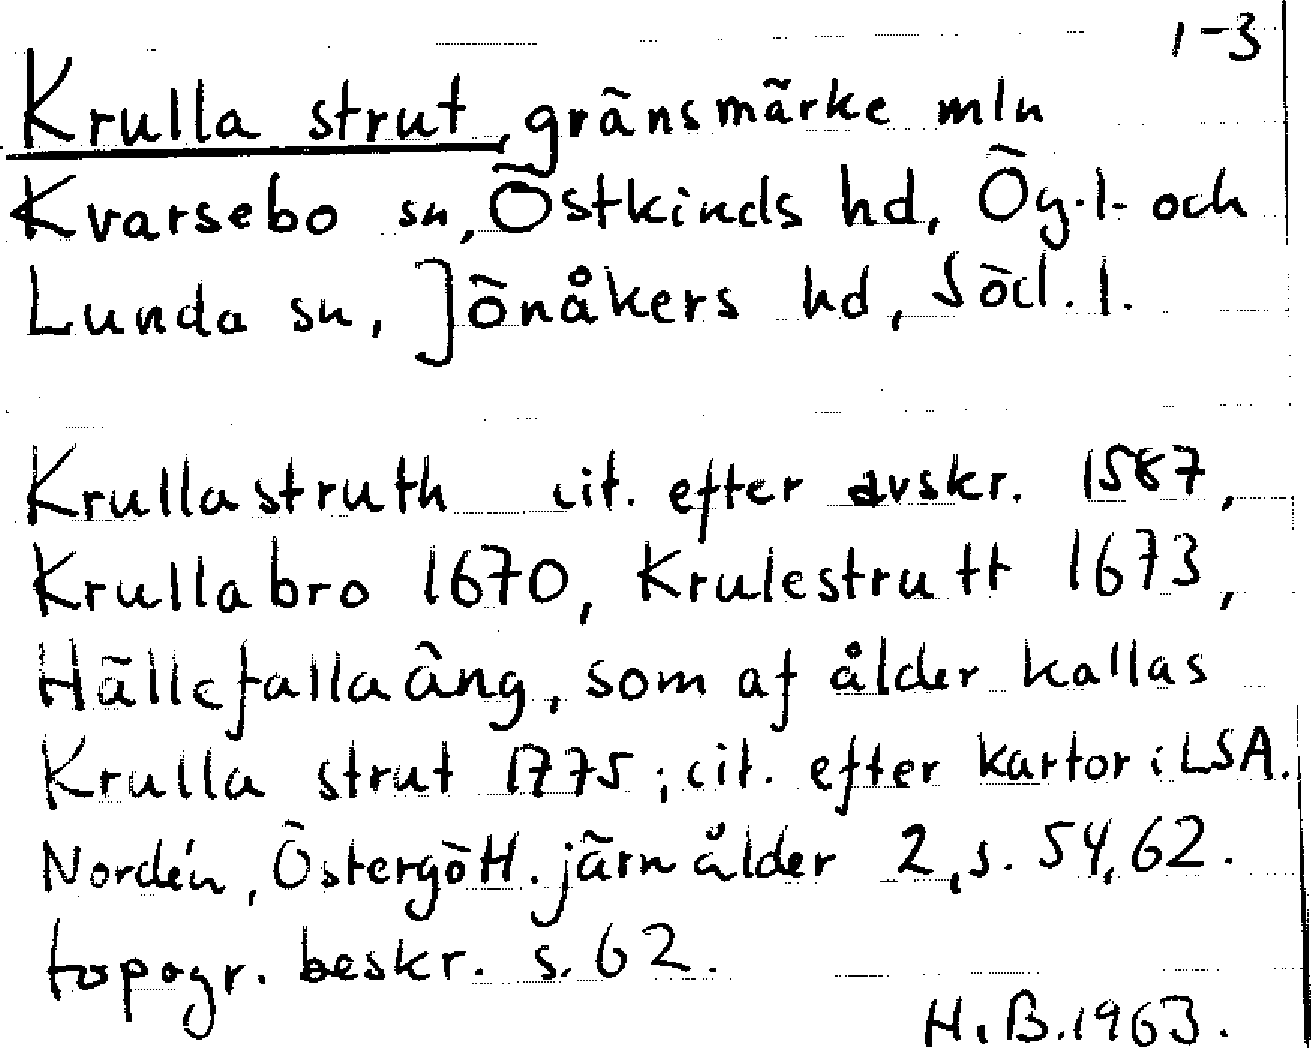 1-3
Krulla strut, gränsmärke mln
Kvarsebo sn, Östkinds hd, Ög.l. och
Lunda sn, Jönåkers hd, Söd.l.
Krullastruth cit. efter avskr. 1587,
Krullabro 1670, Krulestrutt 1673,
Hällefallaäng, som af ålder kallas
Krulla strut 1775; cit. efter kartor i LSA.
Nordén, Östergötl. järnålder 2, s. 54, 62.
topogr. beskr. s. 62.
H.B. 1963.